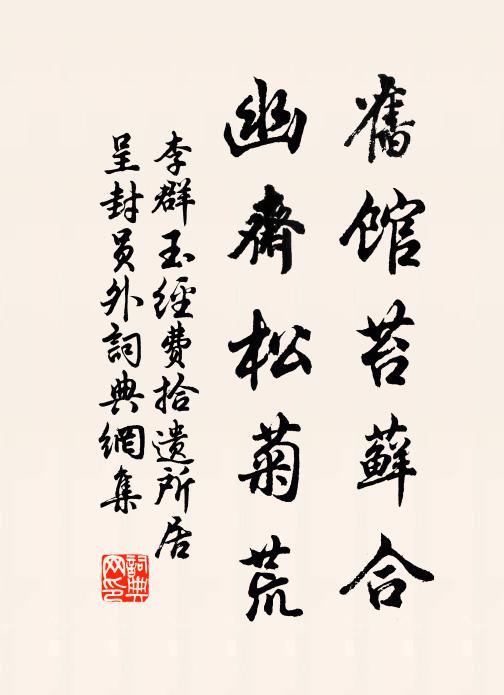 舊館苔蘚合
幽齋松菊荒
李群玉經費拾遺所居
呈封員外詞典網集
詞典网印